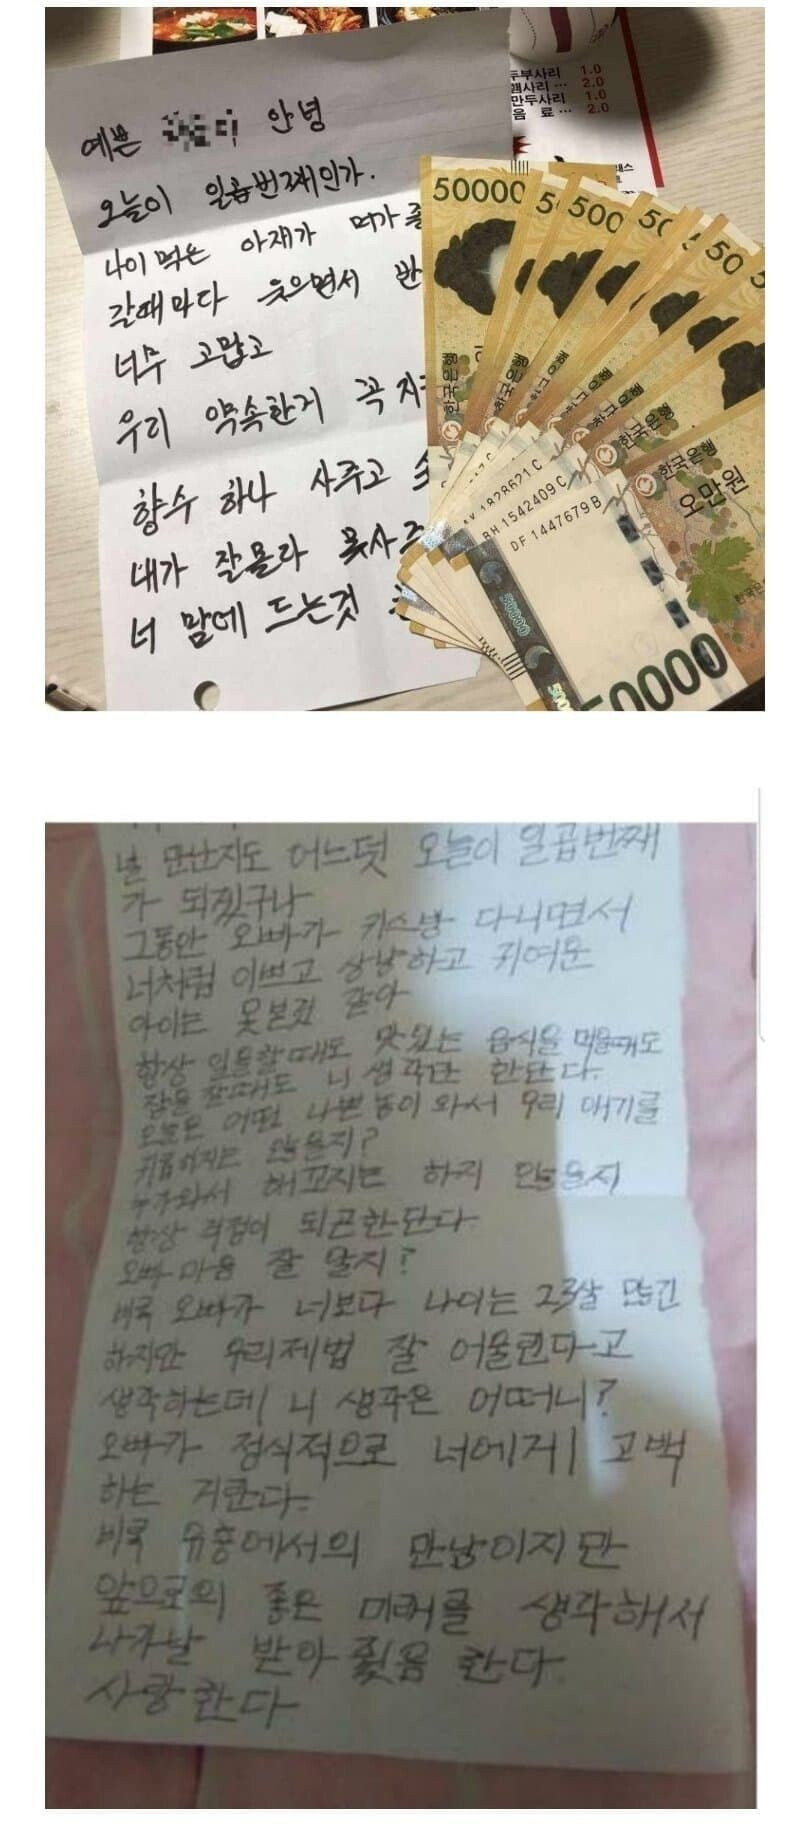 두부사리 1.0
햄사리 ... 2.0
만두사리 1.0
음 료 ... 2.0
예쁜 안녕
오늘이 일곱번째인가.
나이먹은 아재가 머가 좋
갈때마다 웃으면서 반
너무 고맙고
우리 약속한거 꼭 지
향수 하나 사주고
내가 잘몰라 못사주
너 맘에 드는것
50000
500
50
50
50
한국은행
한국은행
한국은행
한국은행
한국은행
오만원
1828621 C
BH 1542409 C
DF 1447679 B
50000
50000
널 만난지도 어느덧 오늘이 일곱번째
가 되겠구나
그동안 오빠가 키스방 다니면서
너처럼 이쁘고 상냥하고 귀여운
아이는 못본것 같아
항상 일을할때도 맛있는 음식을 먹을때도
잠을 잘때도 니 생각만 한단다.
오늘은 어떤 나쁜놈이 와서 우리 애기를
괴롭히지는 않을지?
누가와서 해꼬지는 하지 않을지
항상 걱정이 되곤한단다.
오빠 마음 잘 알지?
비록 오빠가 너보다 나이는 23살 많긴
하지만 우리제법 잘 어울린다고
생각하는데 니 생각은 어떠니?
오빠가 정식적으로 너에게 고백
하는 거란다.
비록 유흥에서의 만남이지만
앞으로의 좋은 미래를 생각해서
나가날 받아 줬음 한다.
사랑한다